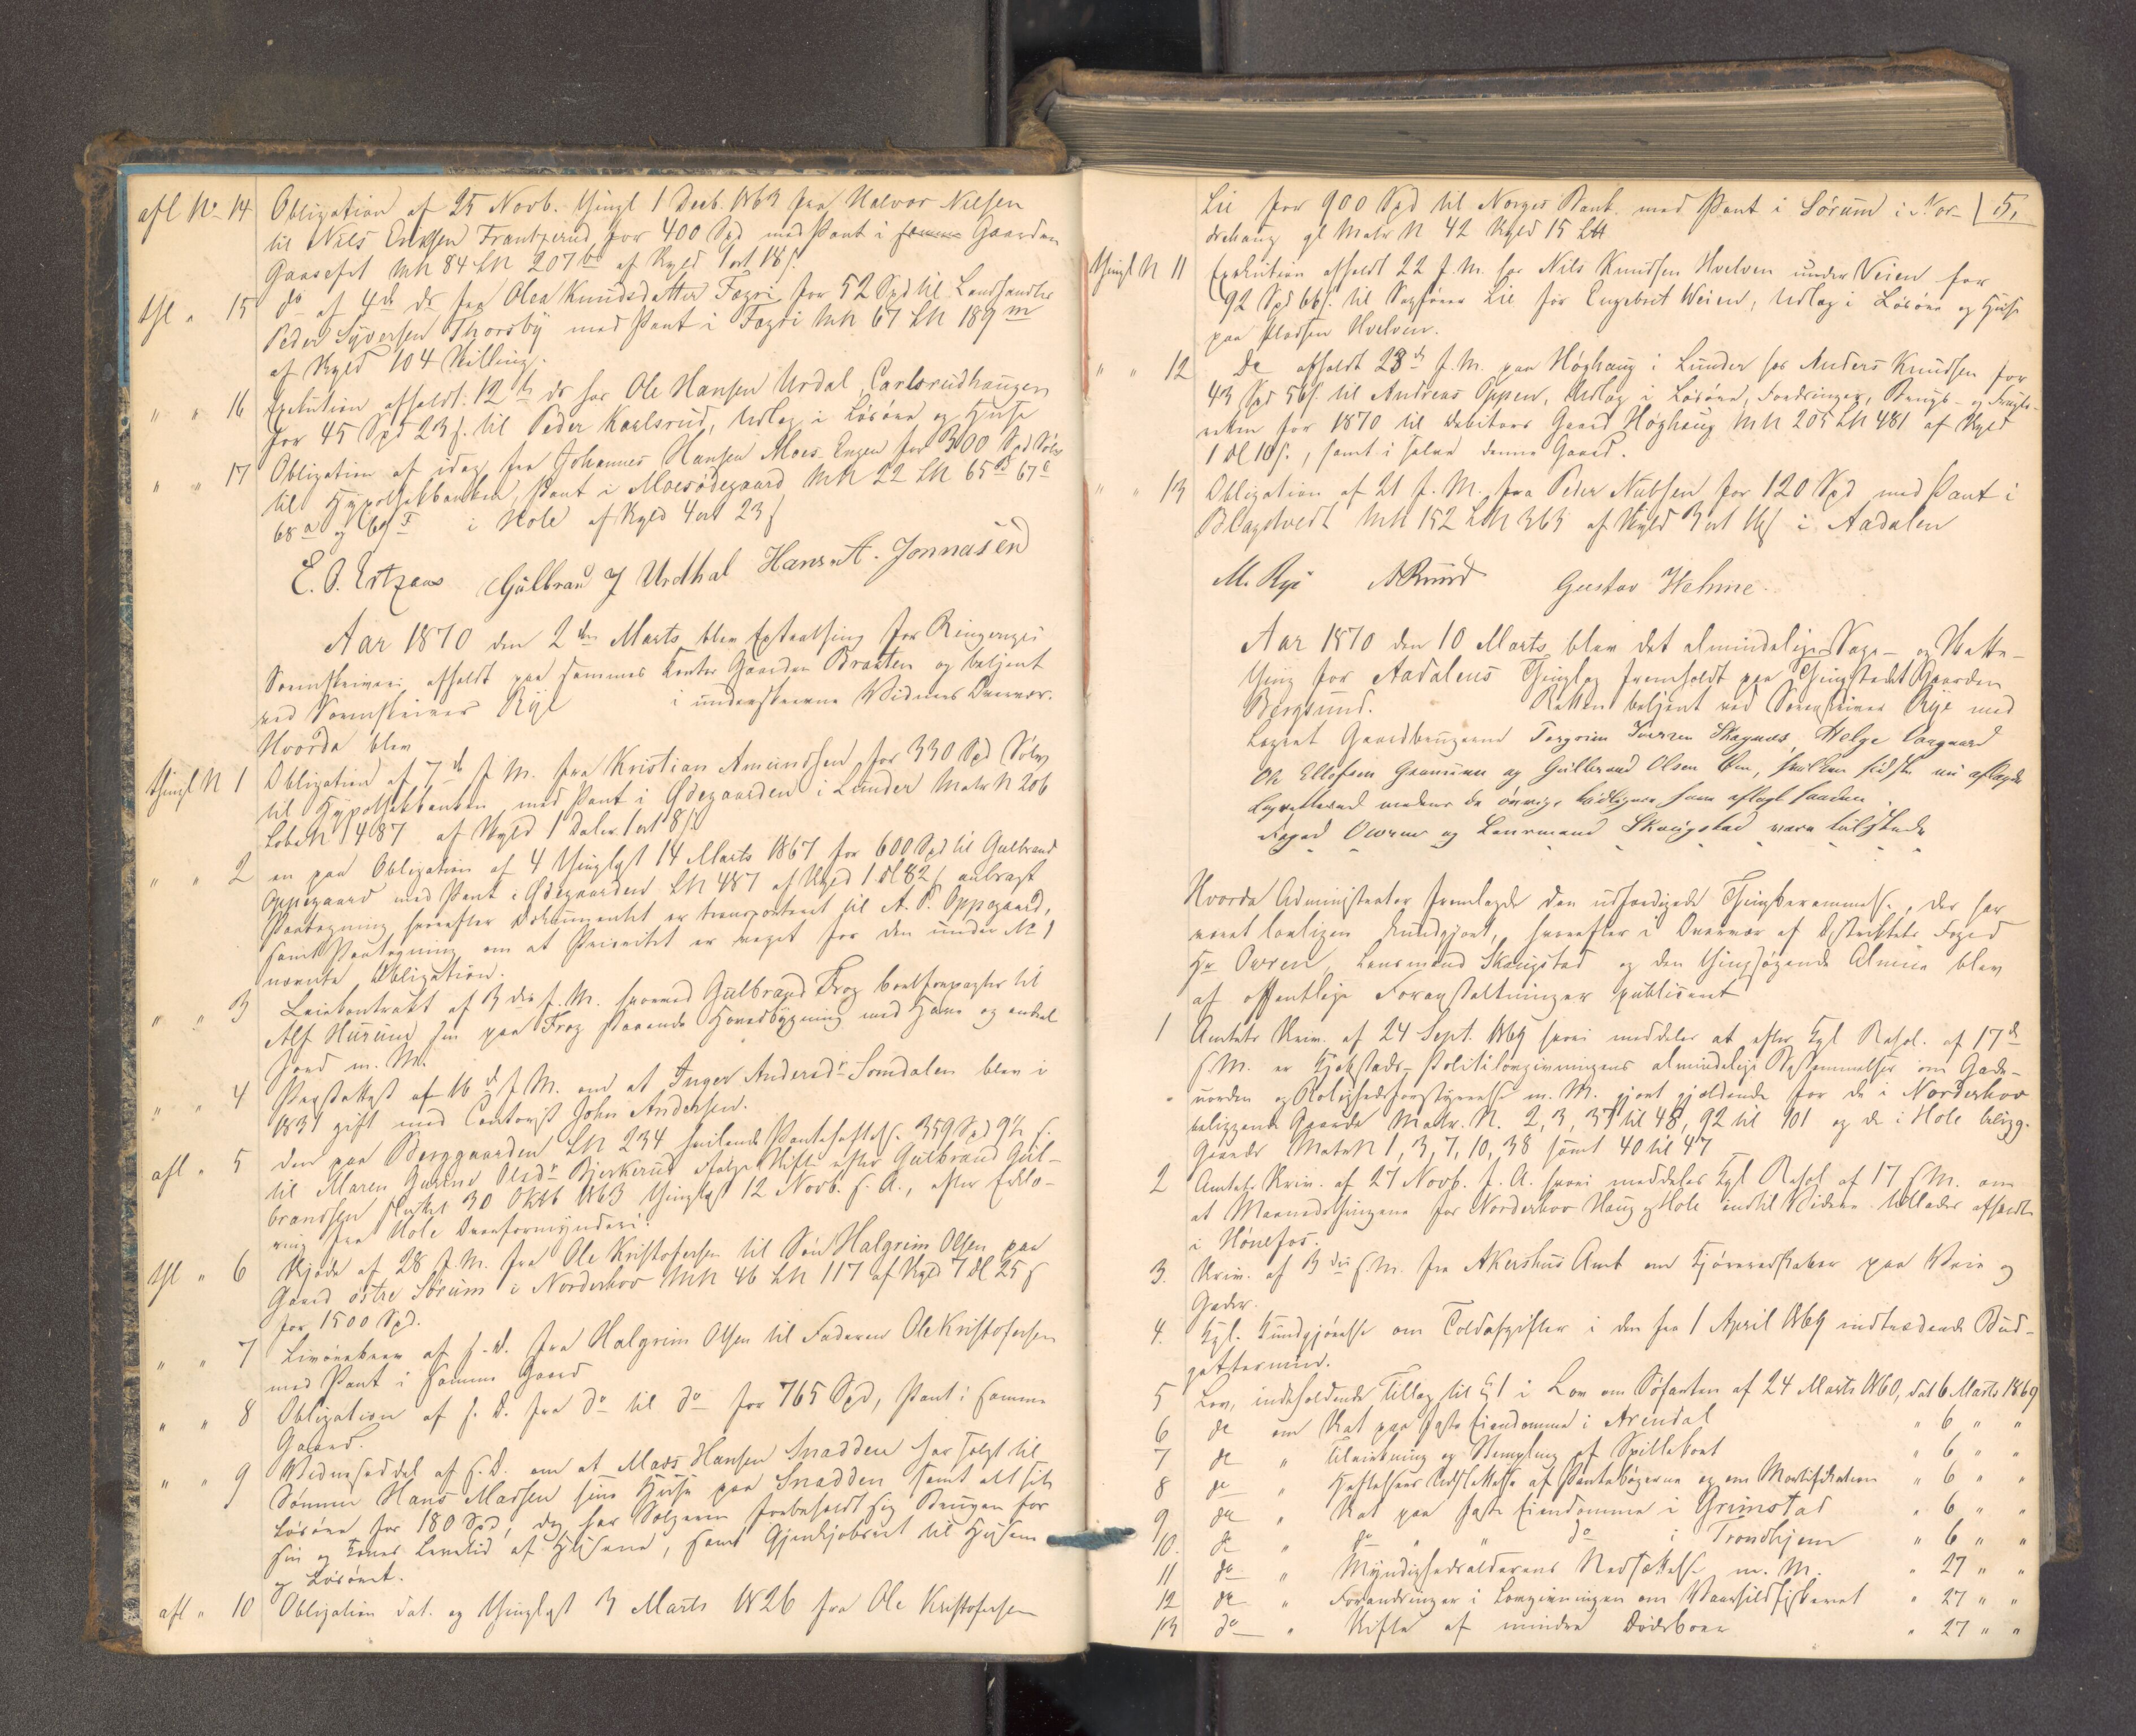 afl No 14 Obligation af 25 Novb. thingl 1 Decb. 1863 fra Halvor Nilsen
til Nils Eriksen Frantzerud for 400 Spd med Pant i Gaarden
Gaasefet MN 84 LN 207 af Skyld 1 ort 18 s.
thl " 15 do af 4de ds fra Olea Knudsdatter Fægri for 52 Spd til Landhandler
Peder Syversen Thorsby med Pant i Fægri MN 67 LN 189 m
af Skyld 104 Skilling.
" " 16 Exekution afholdt 12te ds hos Ole Hansen Urdal, Carlsrudhaugen
for 45 Spd 23 s. til Peder Karlsrud, Udlæg i Løsøre og Huse
" " 17 Obligation af idag fra Johannes Hansen Moes Engen for 300 Spd Sølv
til Hypothekbanken, Pant i Moesødegaard MN 22 LN 65 67
68a og 69 i Hole af Skyld 4 ort 23 s
E. O. Gulbran J Urdhal Hans A. Jonnasen
Aar 1870 den 2den Marts blev Extrathing for Ringeriges
Sorenskriveri afholdt paa sammes Kontor Gaarden Braaten og betjent
ved Sorenskriver Rye i underskrevne Vidners Overvær.
Hvorda blev
thingl N 1 Obligation af 7de f. M. fra Kristian Amundsen for 330 Spd Sølv
til Hypothekbanken med Pant i Ødegaarden i Lunder Matr N 206
Løbe N 487 af Skyld 1 Daler 1 ort 8 s.
" " 2 en paa Obligation af 4 thinglyst 14 Marts 1867 for 600 Spd til Gulbrand
Oppegaard med Pant i Ødegaarden LN 487 af Skyld 1 Dl 82 s anbragt
Paategning hvorefter Dokumentet er transporteret til A. P. Oppegaard,
samt Paategning om at Prioritet er veget for den under No 1
nævnte Obligation.
" " 3 Leiekontrakt af 3die f. M. hvorved Gulbrand Frog bortforpagter til
Alf Hurum sin paa Frog staaende Hovedbygning med Have og endel
Jord m. M.
" " 4 Præsteattest af 16de f. M. om at Inger Andersdr Somdalen blev i
1831 gift med Contorist John Andersen.
afl " 5 den paa Berggaarden LN 234 hvilende Panteheftelse 359 Spd 92 s.
til Maren Gurine Olsdr Bjerkerud ifølge Skifte efter Gulbrand Gul-
brandsen sluttet 30 Oktb 1863 thinglyst 12 Novb. s. A., efter Erklæ-
ring fra Hole Overformynderi.
thl " 6 Skjøde af 28 f. M. fra Ole Kristofersen til Søn Halgrim Olsen paa
Gaard østre Sørum i Norderhov MN 46 LN 117 af Skyld 7 Dl 25 s
for 1500 Spd.
" " 7 Livørebrev af s. D. fra Halgrim Olsen til Faderen Ole Kristofersen
med Pant i samme Gaard
" " 8 Obligation af s. D. fra do til do for 765 Spd, Pant i samme
Gaard.
" " 9 Vidneseddel af s. D. om at Mads Hansen Snadden har solgt til
Sønnen Hans Madsen sine Huse paa Snadden samt alt sit
Løsøre for 180 Spd, dog har Sælgeren forbeholdt sig Brugen for
sin og Kones Levetid af Husene, samt Gjenkjøbsret til Husene
og Løsøret.
afl " 10 Obligation dat. og thinglyst 3 Marts 1826 fra Ole Kristofersen
Lie for 900 Spd til Norges Bank med Pant i Sørum i Nor- 5.
derhaug gl Matr N 42 Skyld 15
thingl N 11 Exekution afholdt 22 f. M. hos Nils Knudsen Hvelven under Veien for
92 Spd 66 s. til Sagfører Lie for Engebret Veien, Udlæg i Løsøre og Huse
paa Pladsen Hvelven.
" " 12 do afholdt 23de f. M. paa Høghaug i Lunder hos Anders Knudsen for
43 Spd 56 s. til Andreas Oppen, Udlæg i Løsøre, Fordringer, Brugs- og Frugt-
retten for 1870 til Debitors Gaard Høghaug MN 205 LN 481 af Skyld
1 Dl 10 s., samt i selve denne Gaard.
" " 13 Obligation af 21 f. M. fra Peder Nubsen for 120 Spd med Pant i
Blagstvedt MN 152 LN 363 af Skyld 3 ort s i Aadalen
M. Rye A Ruud Gustav Hehme.
Aar 1870 den 10 Marts blev det almindelige Sage- og Skatte-
thing for Aadalens Thinglag fremholdt paa Thingstedet Gaarden
Bergsund. Retten betjent ved Sorenskriver Rye med
Lagret Gaardbrugerne Torgrim Iversen Skagnæs, Helge Vaagaard
Ole Ellefsen Grønuen og Gulbrand Olsen Øen, hvilken sidste nu aflagde
Lagretteseed medens de øvrige tidligere have aflagt saadan
Foged Owren og Lensmand Skougstad vare tilstede
Hvorda Administrator fremlagde den udfærdigede Thingberammelse, der har
været lovligen kundgjort, hvorefter i Overvær af Distriktets Foged
Hr Owren, Lensmand Skougstad og den thingsøgende Almue blev
af offentlige Foranstaltninger publiceret
1 Amtets Skriv. af 24 Sept. 1869 hvori meddeles at efter Kgl Resol. af 17de
s. M. er Kjøbstads-Politilovgivningens almindelige Bestemmelser om Gade-
uorden og Rolighedsforstyrrelse m. M. gjort gjældende for de i Norderhov
beliggende Gaarde Matr. N. 2, 3, 37 til 48, 92 til 101 og de i Hole beligg.
Gaarde Matr N 1, 3, 7, 10, 38 samt 40 til 47
2 Amtets Skriv. af 27 Novb. f. A. hvori meddeles Kgl Resol af 17 s M. om
at Maanedsthingene for Norderhov Haug og Hole indtil Videre tillades afholdt
i Hønefos.
3. Skriv. af 3die s. M. fra Akershus Amt om Kjøreredskaber paa Veie og
Gader.
4. Kgl. Kundgjørelse om Toldafgifter i den fra 1 April 1869 indtrædende Bud-
gettermin.
5 Lov, indeholdende Tillæg til § 1 i Lov om Søfarten af 24 Marts 1860, dat 6 Marts 1869
6 do om Skat paa faste Eiendomme i Arendal " 6 " "
7 do " Tilvirkning og Stempling af Spillekort " 6 " "
8 do " Heftelsers Udslettelse af Pantebøgerne og om Mortifikation " 6 " "
9 do " Skat paa faste Eiendomme i Grimstad " 6 " "
10. do " do " " do i Trondhjem " 6 " "
11 do " Myndighedsalderens Nedsættelse m. M. " 27 " "
12 do " Forandringer i Lovgivningen om Vaarsildfiskeriet " 27 " "
13 do " Skifte af mindre Dødsboer " 27 " "